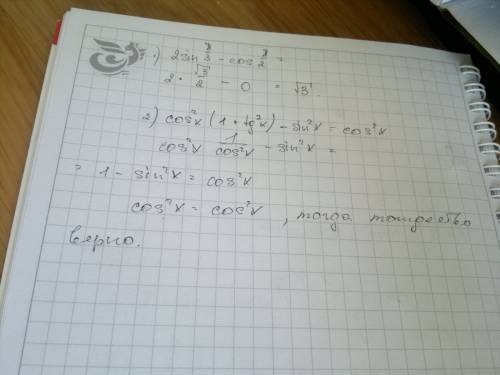 1) 2sin π/3 - cos π/2 =
2 · √3/2 - 0 = √3.
2) cos²x (1 + tg²x) - sin²x = cos²x
cos²x 1/cos²x - sin²x =
= 1 - sin²x = cos²x
cos²x = cos²x, тогда тождество
верно.